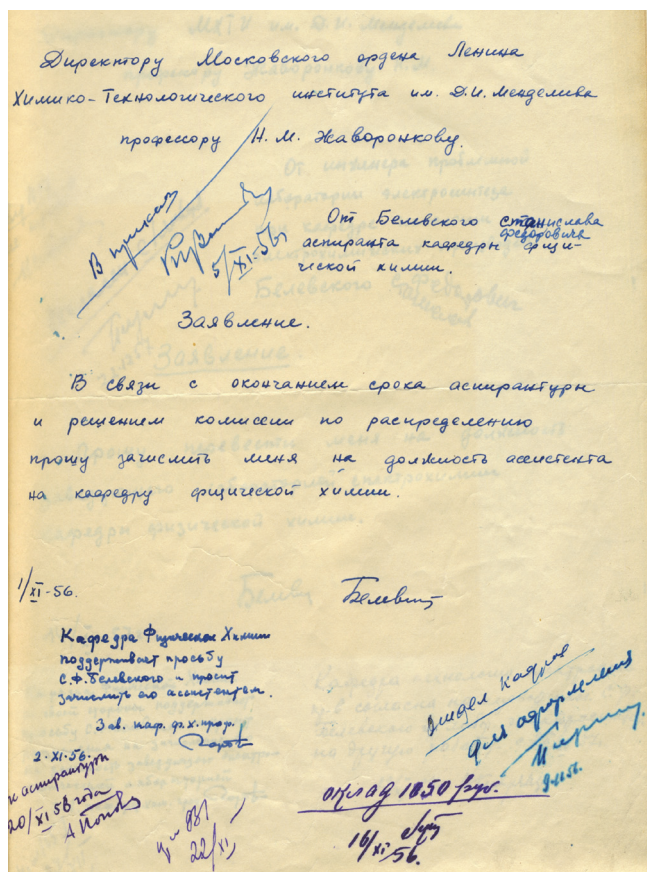 Директору Московского ордена Ленина
Химико-Технологического института им. Д.И. Менделеева
профессору Н.М. Жаворонкову.
В приказ
5/XI-56г
От Белевского Станислава
Федоровича
аспиранта кафедры физи-
ческой химии.
Заявление.
В связи с окончанием срока аспирантуры
и решением комиссии по распределению
прошу зачислить меня на должность ассистента
на кафедру физической химии.
1/XI-56.
Кафедра Физической Химии
поддерживает просьбу
С.Ф. Белевского и просит
зачислить его ассистентом.
Зав. каф. ф.х. проф.
2-XI-56.
Отдел кадров
для оформления
9-11-56.
аспирантуры
20/XI 56 года
оклад 1050 руб.
16/XI 56.
22/XI